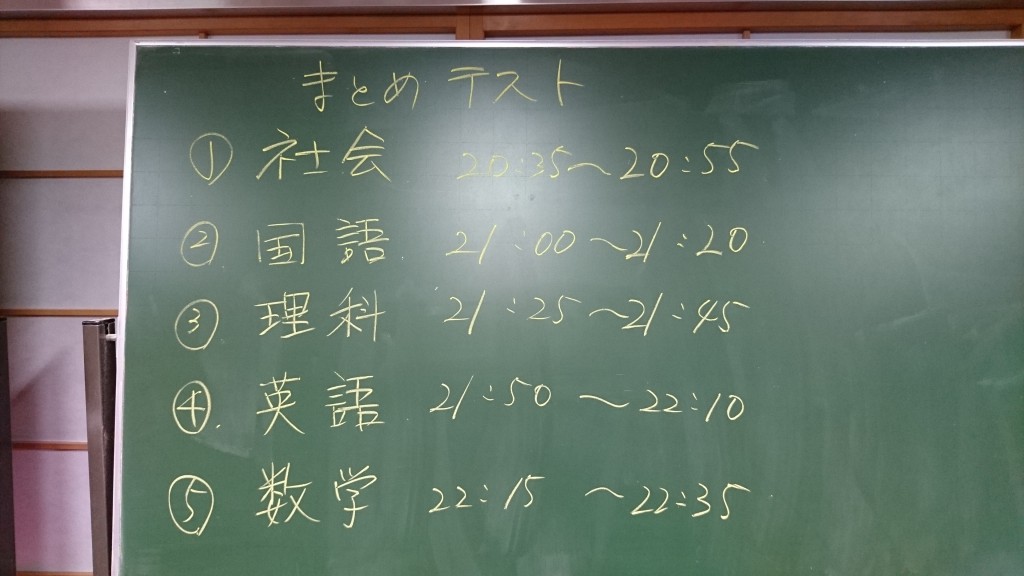 まとめテスト
① 社会 20:35～20:55
② 国語 21:00～21:20
③ 理科 21:25～21:45
④ 英語 21:50～22:10
⑤ 数学 22:15～22:35